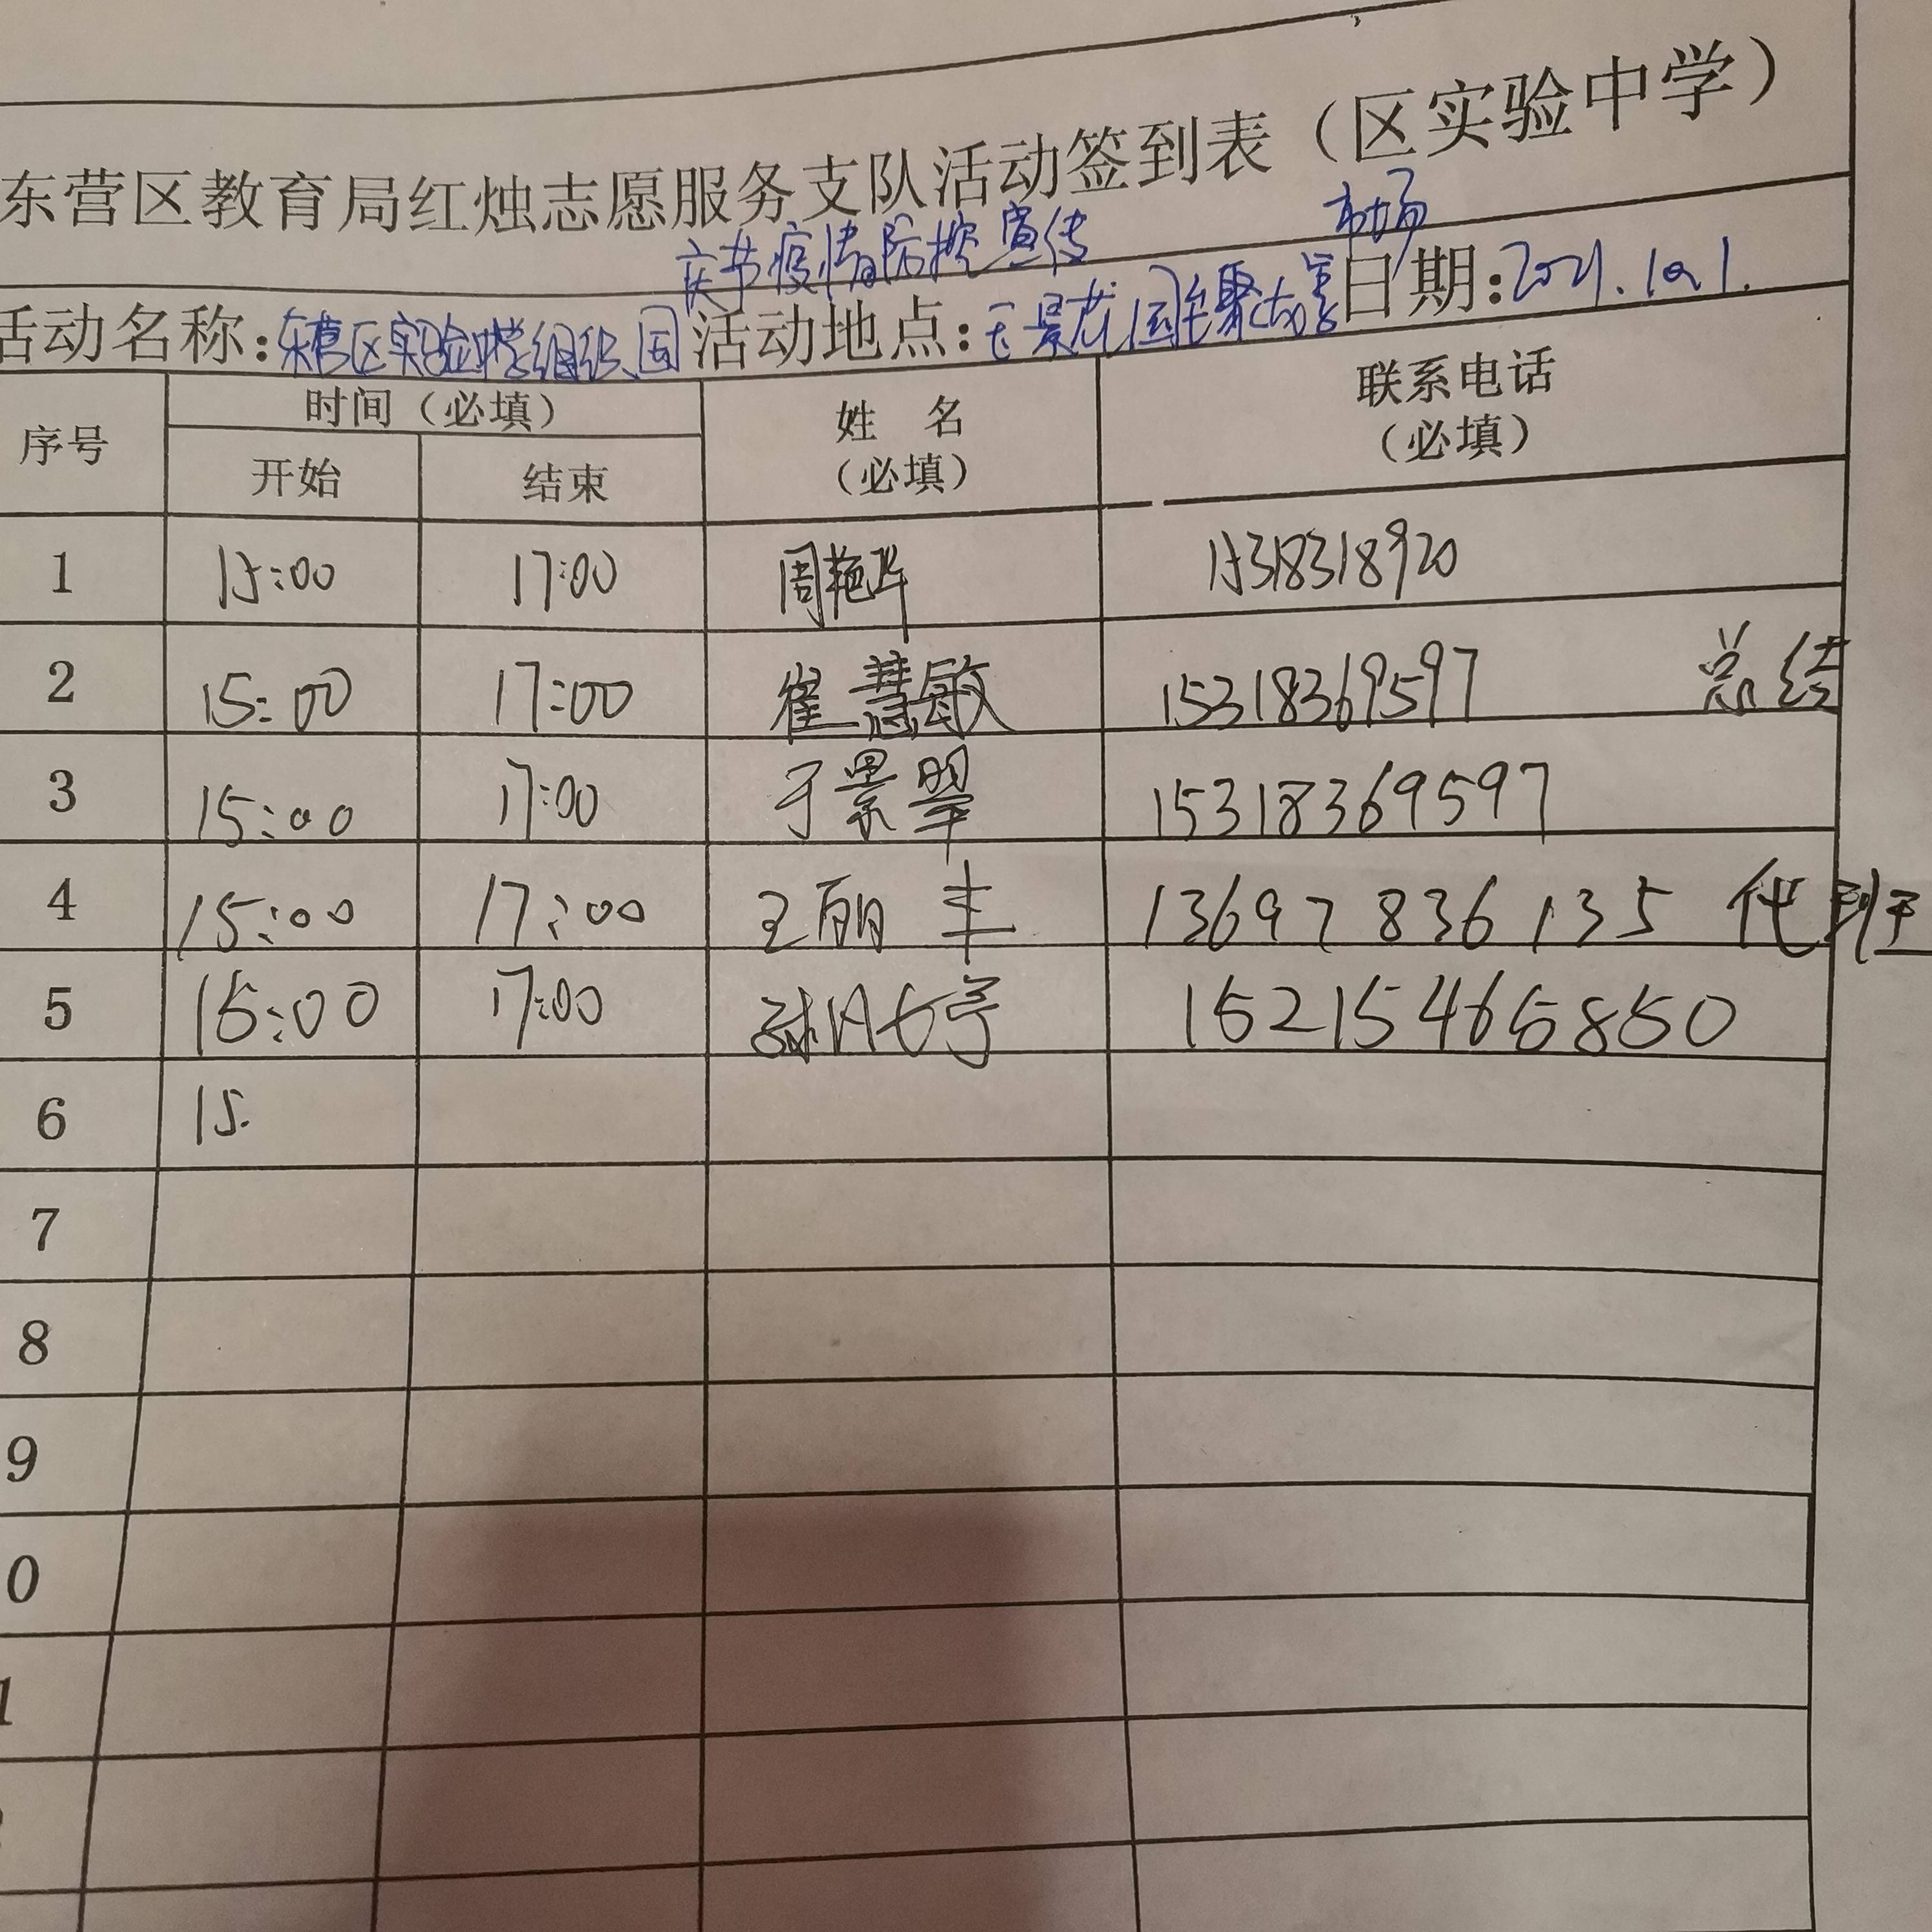 东营区教育局红烛志愿服务支队活动签到表（区实验中学）
庆节疫情防控宣传 市场
活动名称:东营区实验中学组织国 活动地点: 日期:2021.10.1.
序号 时间（必填） 姓 名（必填） 联系电话（必填）
开始 结束
1 15:00 17:00 周艳华 15318318920
2 15:00 17:00 崔慧敏 15318369597 总结
3 15:00 17:00 于景翠 15318369597
4 15:00 17:00 王丽丰 13697836135 代班
5 15:00 17:00 15215465850
6 15.
7
8
9
0
1